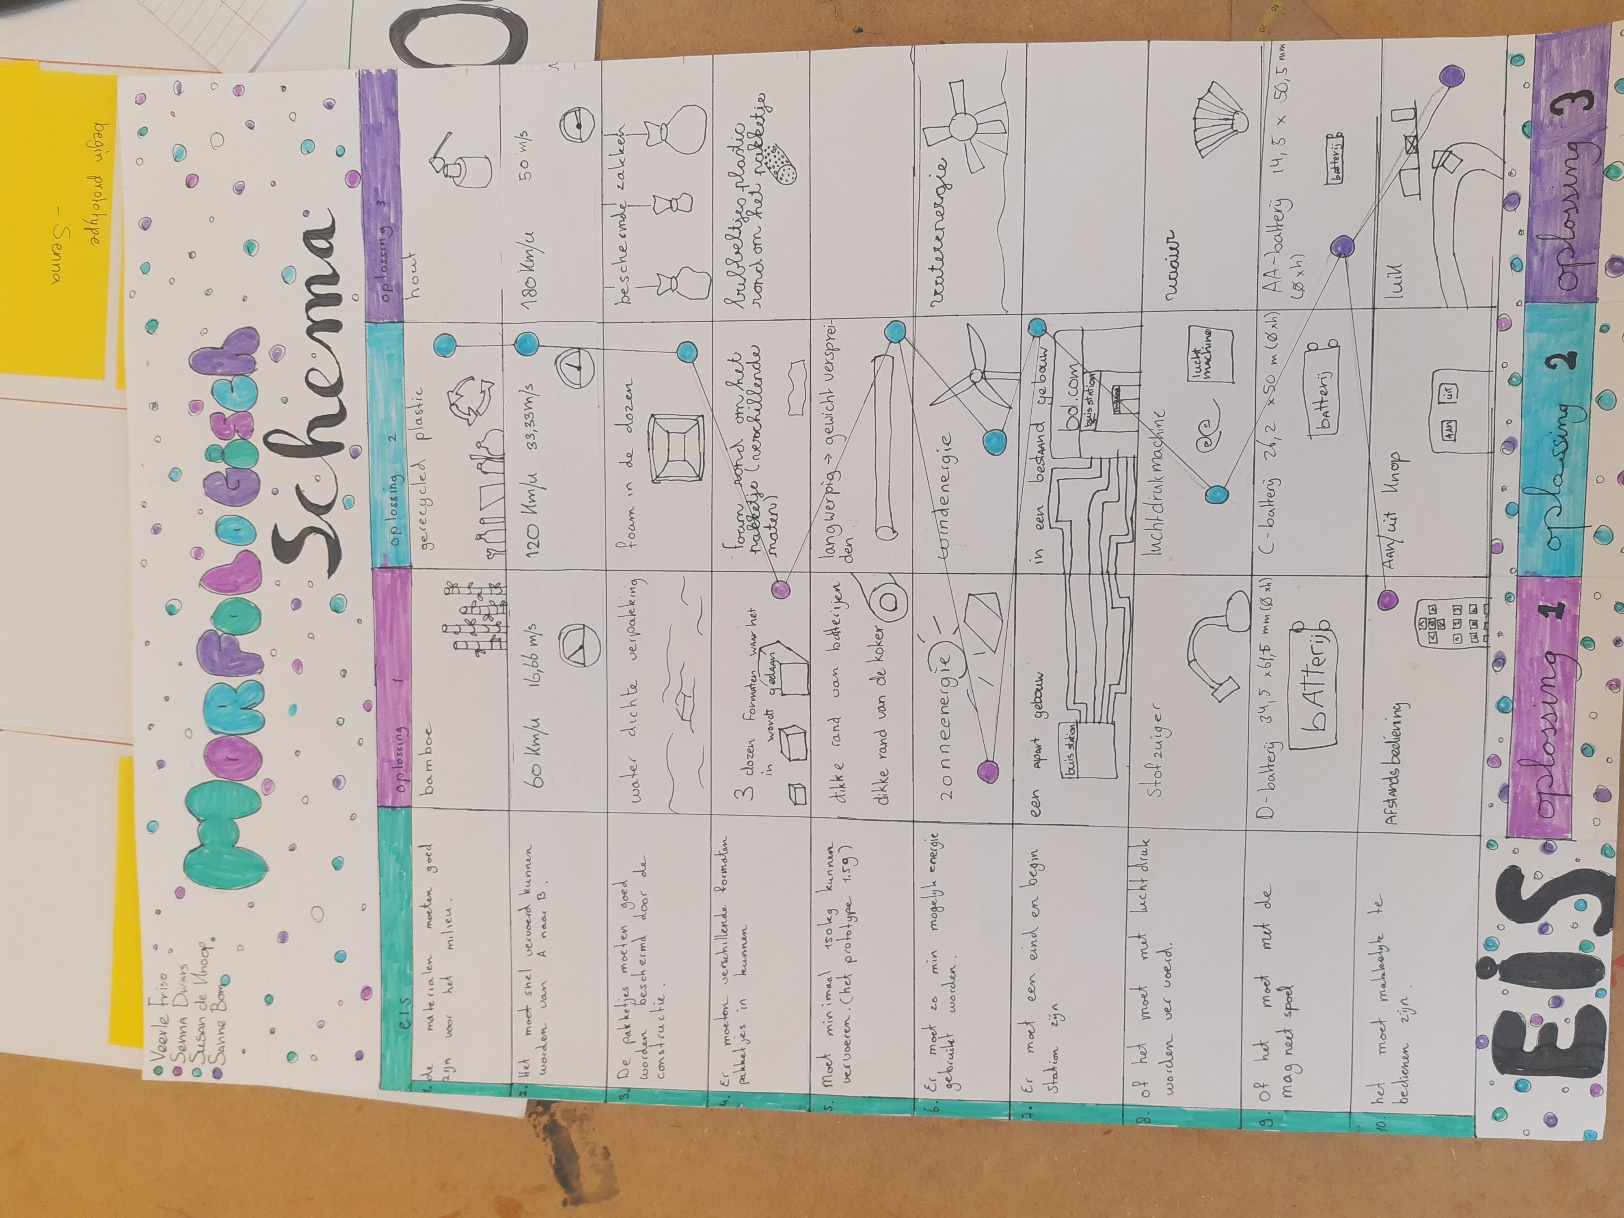 MORFOLOGISCH
Schema
Veerle Friso
Senna Dwars
Susan de Knoop
Sanne Bom
eis
oplossing 1
oplossing 2
oplossing 3
1. de materialen moeten goed
zijn voor het milieu.
bamboe
gerecycled plastic
hout
2. Het moet snel vervoerd kunnen
worden van A naar B.
60 Km/u 16,66 m/s
120 Km/u 33,33 m/s
180 Km/u 50 m/s
3. De pakketjes moeten goed
worden beschermd door de
constructie.
water dichte verpakking
foam in de dozen
beschermde zakken
4. Er moeten verschillende formaten
pakketjes in kunnen
3 dozen formaten waar het
in wordt gedaan
foam rond om het
pakketje (verschillende
maten)
bubbeltjes plastic
rond om het pakketje
5. Moet minimaal 150kg kunnen
vervoeren. (het prototype 1.5g)
dikke rand van batterijen
dikke rand van de koker
langwerpig → gewicht versprei-
den
6. Er moet zo min mogelijk energie
gebruikt worden.
zonneenergie
windenergie
waterenergie
7. Er moet een eind en begin
station zijn
een apart gebouw
buis station
in een bestaand gebouw
bol.com
buis station
8. of het moet met lucht druk
worden ver voerd.
Stofzuiger
luchtdrukmachine
lucht
machine
waaier
9. of het moet met de
mag neet spoel
D-batterij 34,5 x 61,5 mm (Ø xh)
bATTerij
C-batterij 26,2 x 50 m (Ø xh)
batterij
AA-batterij 14,5 x 50,5 mm
(Ø xh)
batterij
10. het moet makkelijk te
bedienen zijn.
Afstandsbediening
AAn/uit Knop
AAN
uit
luik
EiS
oplossing 1
oplossing 2
oplossing 3
begin prototype
- Senna